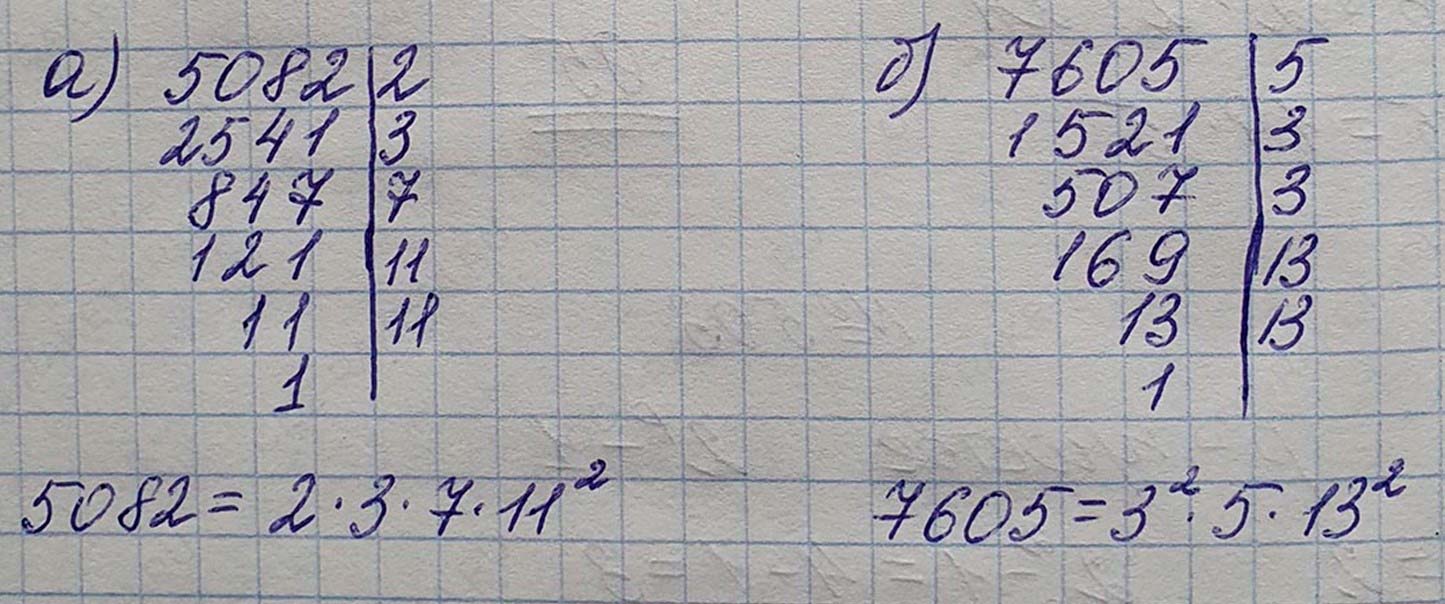 а) 5082 | 2
2541 | 3
847 | 7
121 | 11
11 | 11
1
5082 = 2 · 3 · 7 · 11²
б) 7605 | 5
1521 | 3
507 | 3
169 | 13
13 | 13
1
7605 = 3² · 5 · 13²